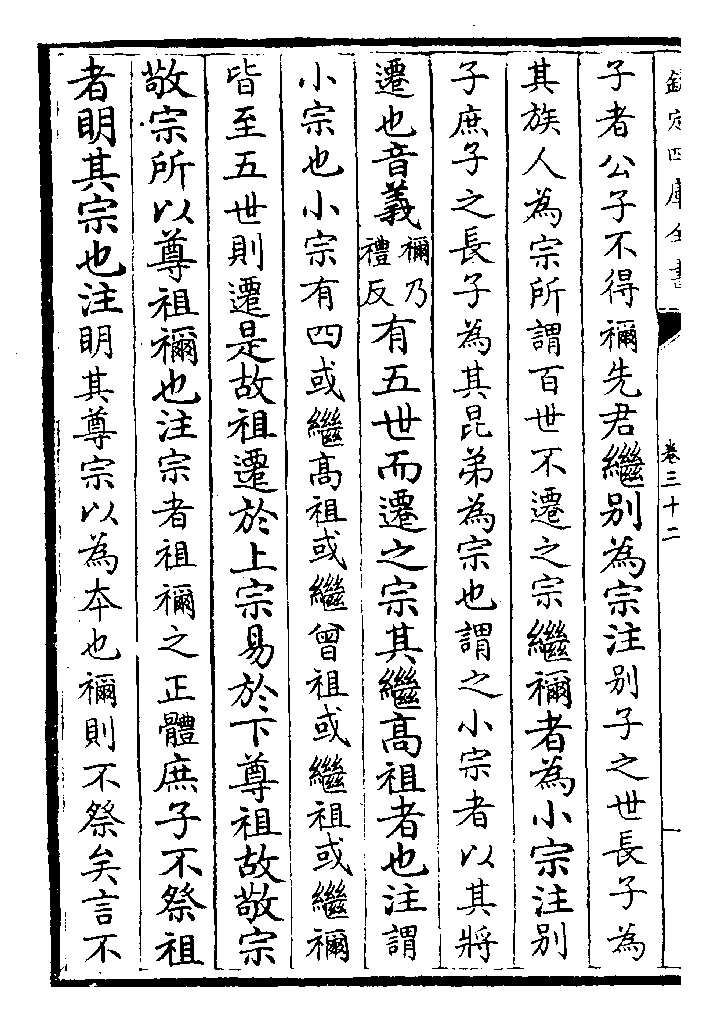 欽定四庫全書
卷三十二
子者公子不得禰先君繼别為宗注别子之世長子為
其族人為宗所謂百世不遷之宗繼禰者為小宗注别
子庶子之長子為其昆弟為宗也謂之小宗者以其將
遷也音義禰乃禮反有五世而遷之宗其繼高祖者也注謂
小宗也小宗有四或繼高祖或繼曾祖或繼祖或繼禰
皆至五世則遷是故祖遷於上宗易於下尊祖故敬宗
敬宗所以尊祖禰也注宗者祖禰之正體庶子不祭祖
者明其宗也注明其尊宗以為本也禰則不祭矣言不